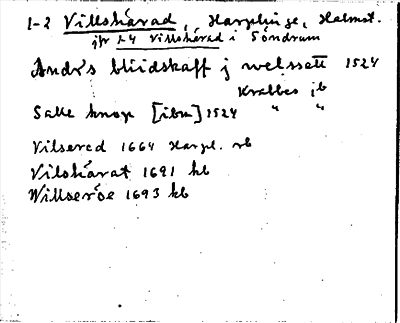 1-2 Villshärad, Harplinge, Halmst.
jfr 1-4 Villshärad i Söndrum
Anders bliidskaff j welssett 1524
Krabbes jb
Salle knap [ibm] 1524 " "
Vilsered 1664 Harpl. rb
Vilshärat 1691 kb
Willseröe 1693 kb